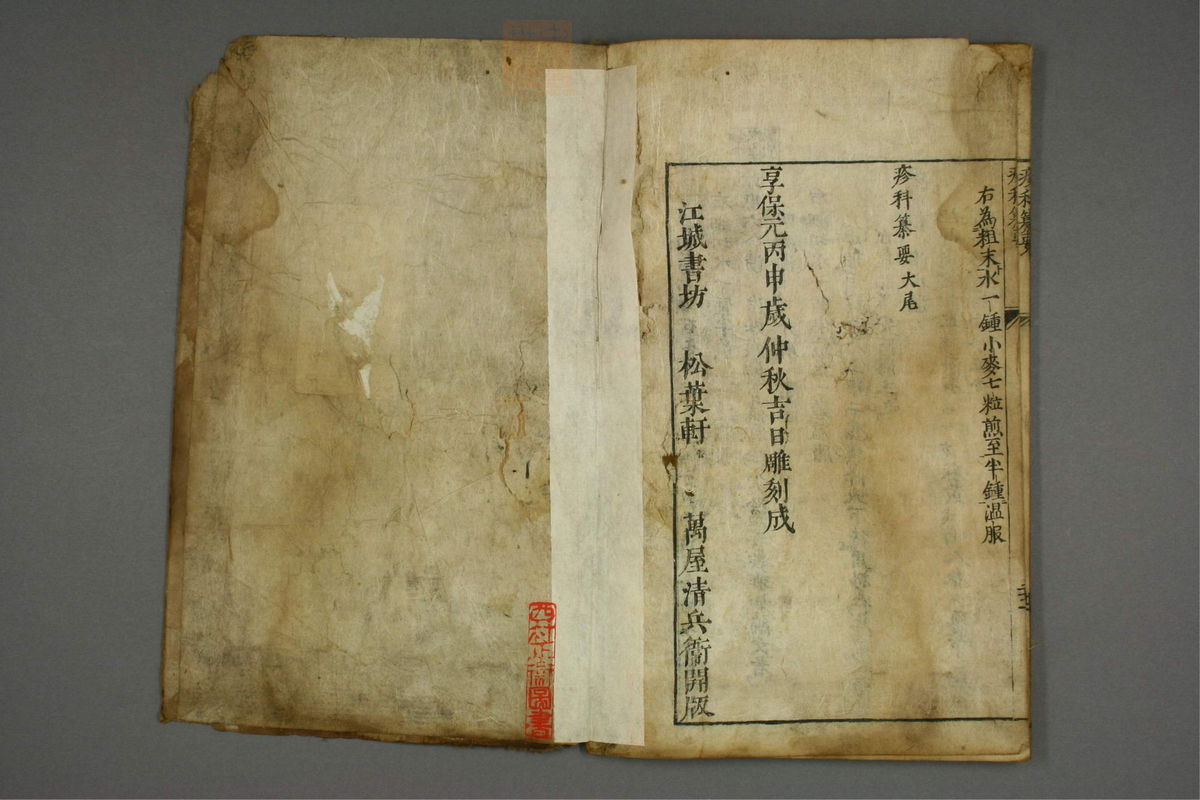 疹科纂要
右為粗末水一鍾小麥七粒煎至半鍾溫服
疹科纂要大尾
享保元丙申歲仲秋吉日雕刻成
江城書坊 松葉軒 萬屋清兵衞開版